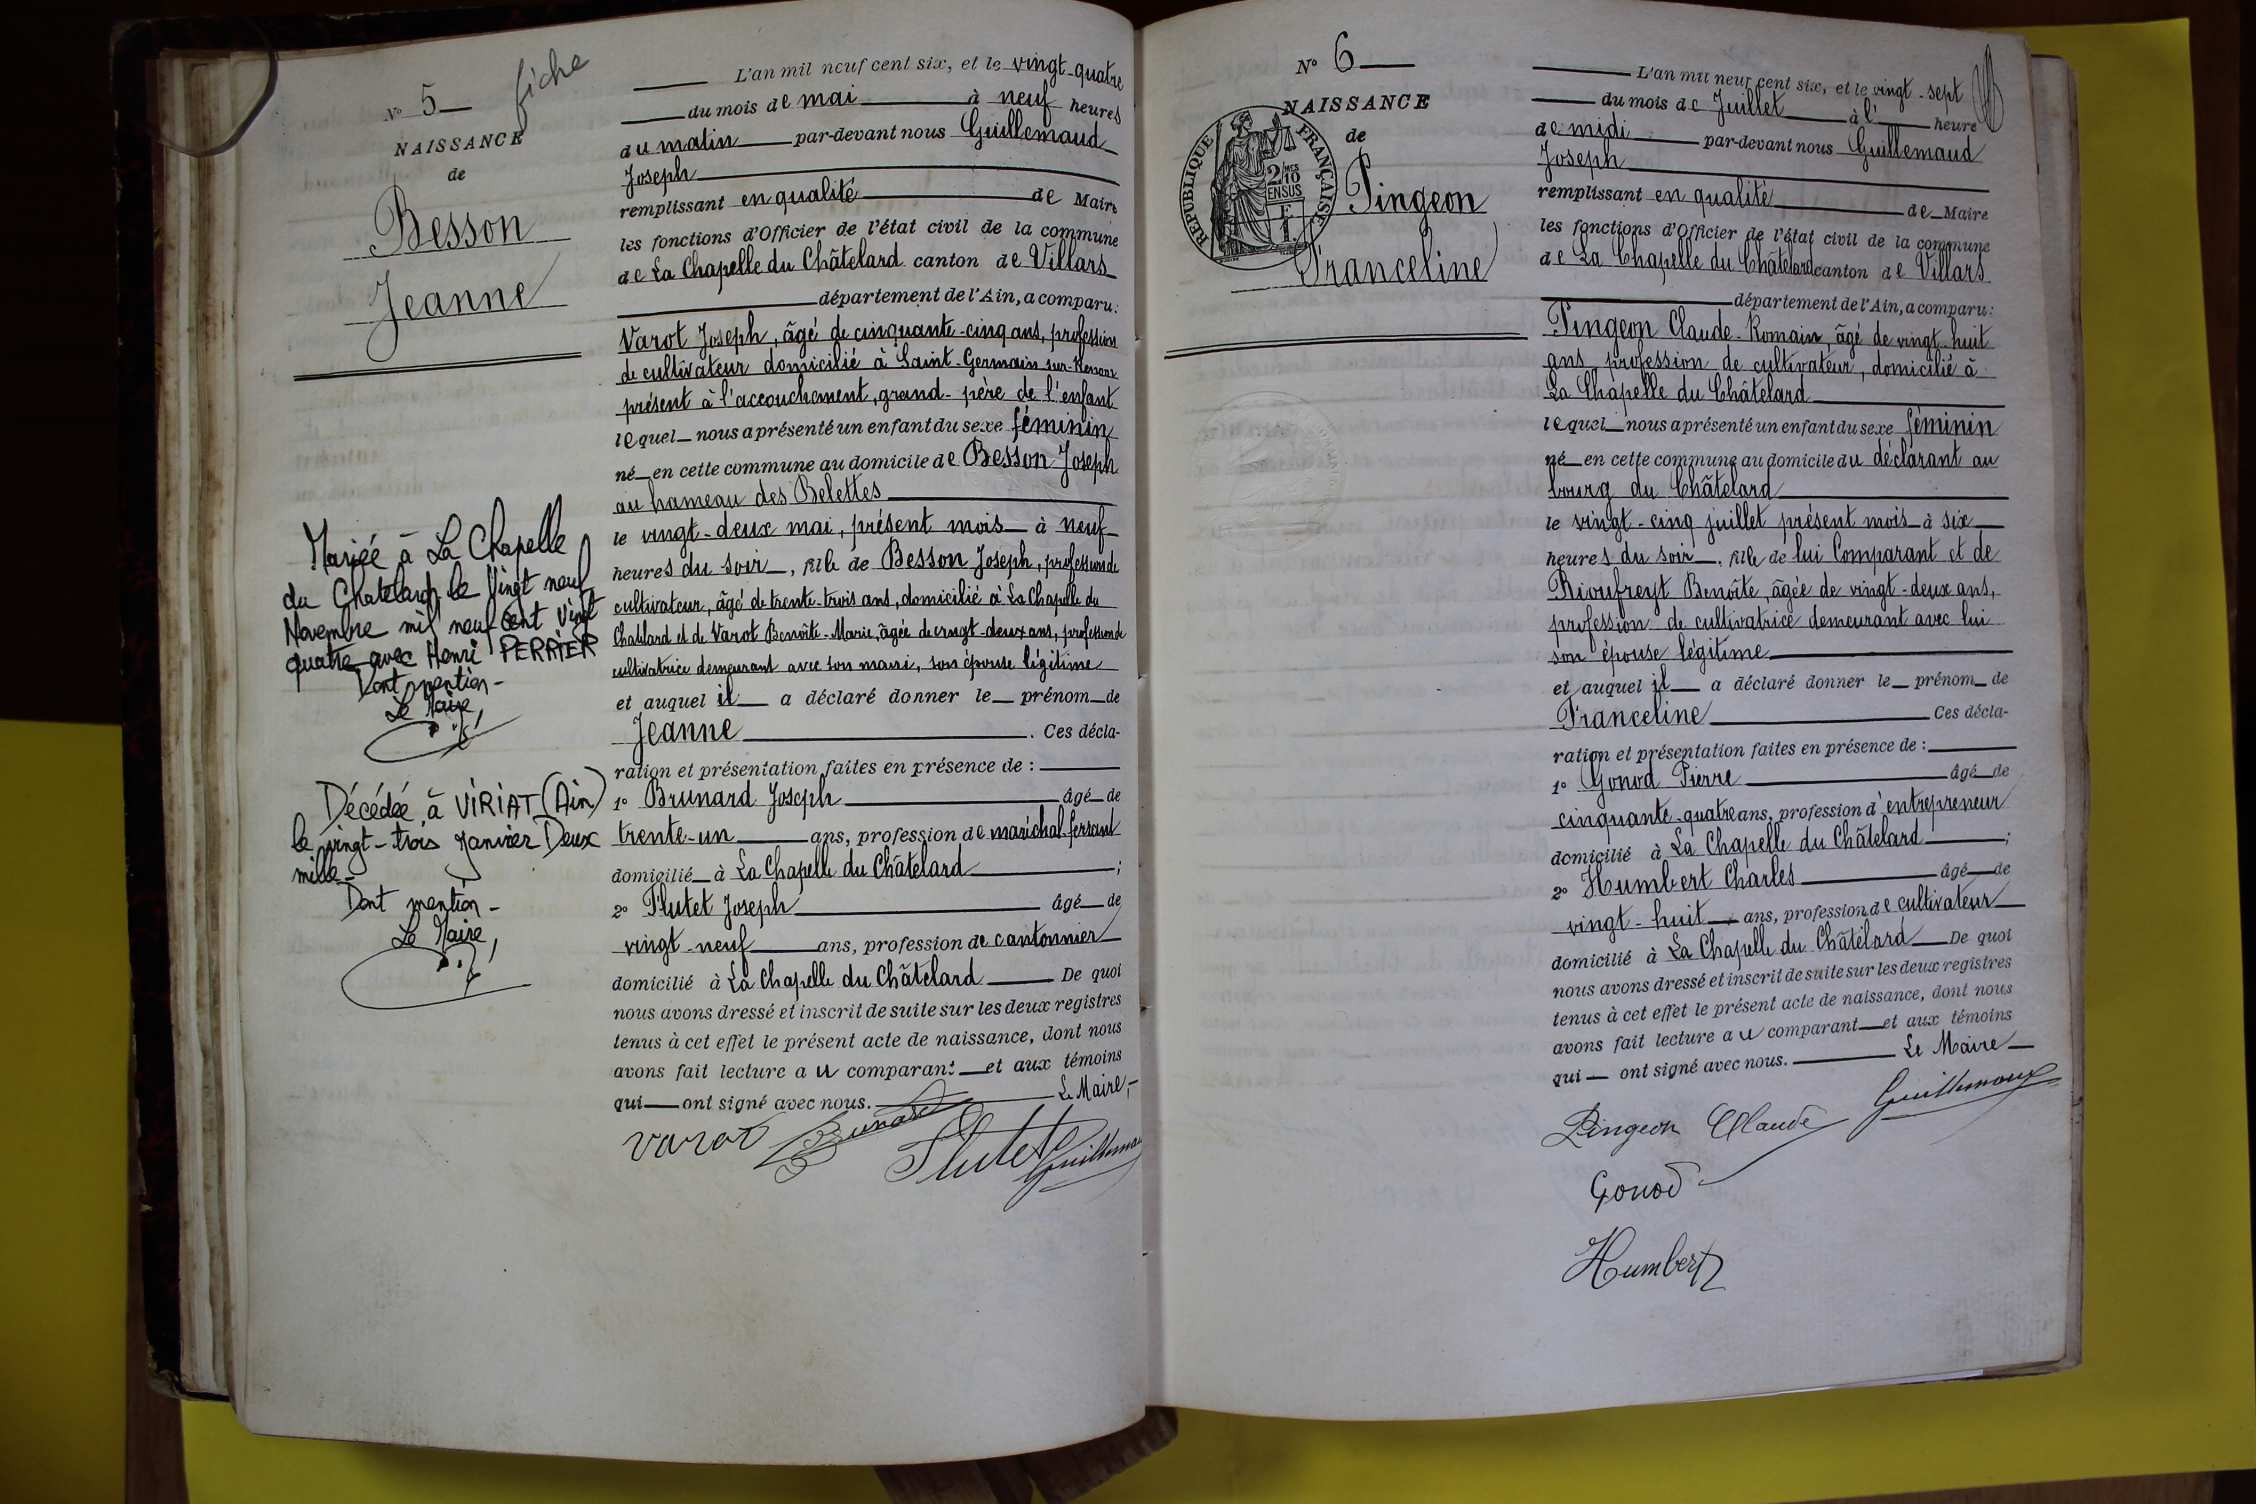 fiche
N° 5
NAISSANCE
de
Besson
Jeanne
Mariée à La Chapelle
du Chatelard le Vingt neuf
Novembre mil neuf cent vingt
quatre avec Henri PERRIER
Dont mention -
Le Maire,
Décédée à VIRIAT (Ain)
le vingt-trois Janvier Deux
mille -
Dont mention -
Le Maire,
L'an mil neuf cent six, et le vingt-quatre
du mois de mai à neuf heures
du matin par-devant nous Guillemaud
Joseph
remplissant en qualité de Maire
les fonctions d'Officier de l'état civil de la commune
de La Chapelle du Châtelard canton de Villars
département de l'Ain, a comparu:
Varot Joseph, âgé de cinquante-cinq ans, profession
de cultivateur domicilié à Saint-Germain sur-Renon
présent à l'accouchement, grand-père de l'enfant
lequel nous a présenté un enfant du sexe féminin
né en cette commune au domicile de Besson Joseph
au hameau des Belettes
le vingt-deux mai, présent mois à neuf
heures du soir, fille de Besson Joseph, profession de
cultivateur, âgé de trente-trois ans, domicilié à La Chapelle du
Chatelard et de Varot Benoîte-Marie, âgée de vingt-deux ans, profession de
cultivatrice demeurant avec son mari, son épouse légitime
et auquel il a déclaré donner le prénom de
Jeanne. Ces décla-
ration et présentation faites en présence de :
1° Brunard Joseph âgé de
trente-un ans, profession de maréchal-ferrant
domicilié à La Chapelle du Châtelard ;
2° Flutet Joseph âgé de
vingt-neuf ans, profession de cantonnier
domicilié à La Chapelle du Châtelard De quoi
nous avons dressé et inscrit de suite sur les deux registres
tenus à cet effet le présent acte de naissance, dont nous
avons fait lecture au comparant et aux témoins
qui ont signé avec nous. Le Maire,
Varot Brunard
Flutet Guillemau
N° 6
NAISSANCE
de
RÉPUBLIQUE FRANÇAISE
2/10
EN SUS
Pingeon
Franceline
L'an mil neuf cent six, et le vingt-sept
du mois de Juillet à l' heure
de midi par-devant nous Guillemaud
Joseph
remplissant en qualité de Maire
les fonctions d'Officier de l'état civil de la commune
de La Chapelle du Châtelard canton de Villars
département de l'Ain, a comparu:
Pingeon Claude-Romain, âgé de vingt-huit
ans, profession de cultivateur, domicilié à
La Chapelle du Châtelard
lequel nous a présenté un enfant du sexe féminin
né en cette commune au domicile du déclarant au
bourg du Châtelard
le vingt-cinq juillet présent mois à six
heures du soir, fille de lui Comparant et de
Rioufreyt Benoîte, âgée de vingt-deux ans,
profession de cultivatrice demeurant avec lui
son épouse légitime
et auquel il a déclaré donner le prénom de
Franceline Ces décla-
ration et présentation faites en présence de :
1° Gonod Pierre âgé de
cinquante-quatre ans, profession d'entrepreneur
domicilié à La Chapelle du Châtelard ;
2° Humbert Charles âgé de
vingt-huit ans, profession de cultivateur
domicilié à La Chapelle du Châtelard De quoi
nous avons dressé et inscrit de suite sur les deux registres
tenus à cet effet le présent acte de naissance, dont nous
avons fait lecture au comparant et aux témoins
qui ont signé avec nous. Le Maire
Pingeon Claude Guillemaux
Gonod
Humbert